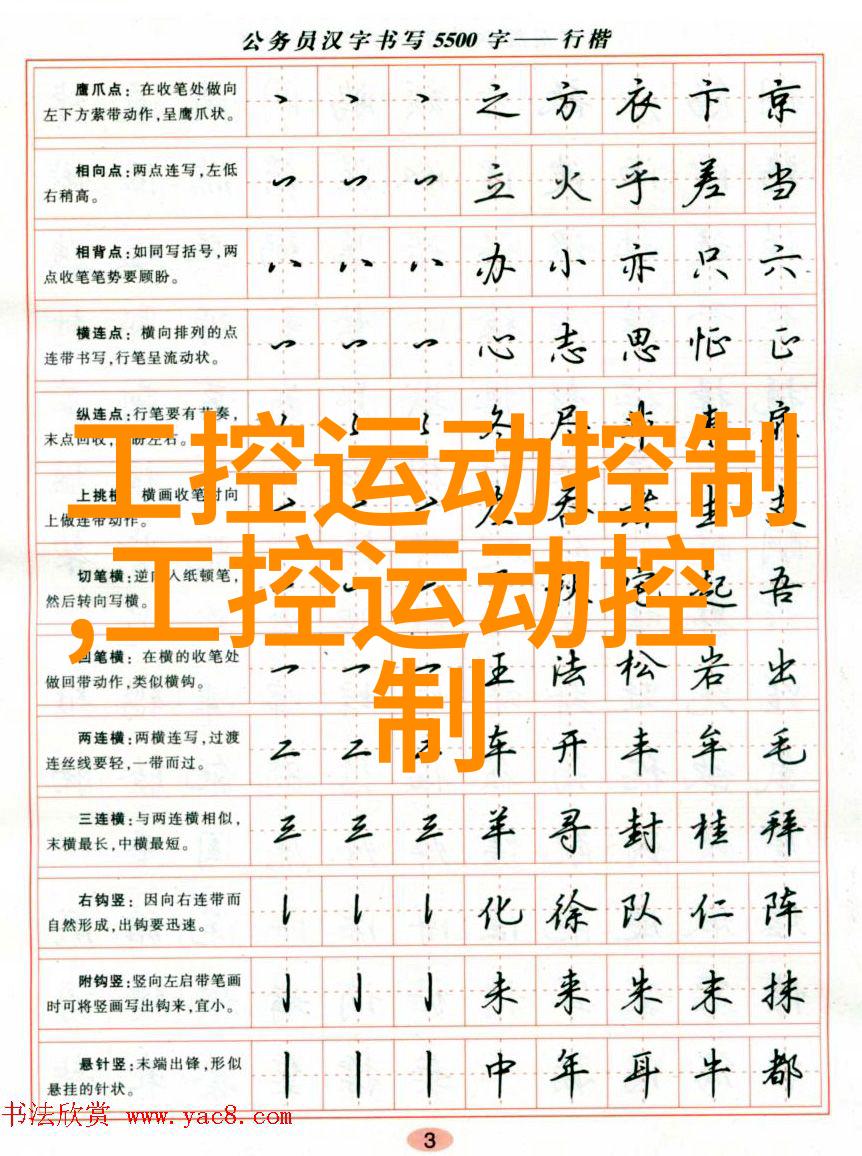 公务员汉字书写5500字——行楷
鹰爪点：在收笔处做向
左下方萦带动作,呈鹰爪状。
之 方 衣 卞 京
相向点:两点连写,左低
右稍高。
立 火 乎 差 当
相背点:如同写括号,两
点收笔笔势要顾盼。
办 小 亦 只 六
横连点：横向排列的点
连带书写,行笔呈流动状。
心 志 思 怔 正
纵连点:行笔要有节奏,
末点回收,
盼左右。
冬 尽
上挑横：横画收笔时向
上做连带动作。
切笔横:逆向入纸顿笔,
然后转向写横。
起 吾
回笔横：在横的收笔处
做回带动作,类似横钩。
王 法 松 岩 出
两连横:两横连写,过渡
连丝线要轻,一带而过。
车 开 丰 牟 毛
三连横:与两连横相似,
末横最长,中横最短。
羊 寻 封 桂 拜
右钩竖：因向右连带而
自然形成,出钩要迅速。
化 徐 队 仁 阵
附钩竖:竖向左启带笔画
时可将竖画写出钩来,宜小。
未 来 朱 末 抹
悬针竖:末端出锋,形似
悬挂的针状。
中 年 耳 牛 都
工控运动控制
,工控运动控
制
书法欣赏 www.yac8.com
3